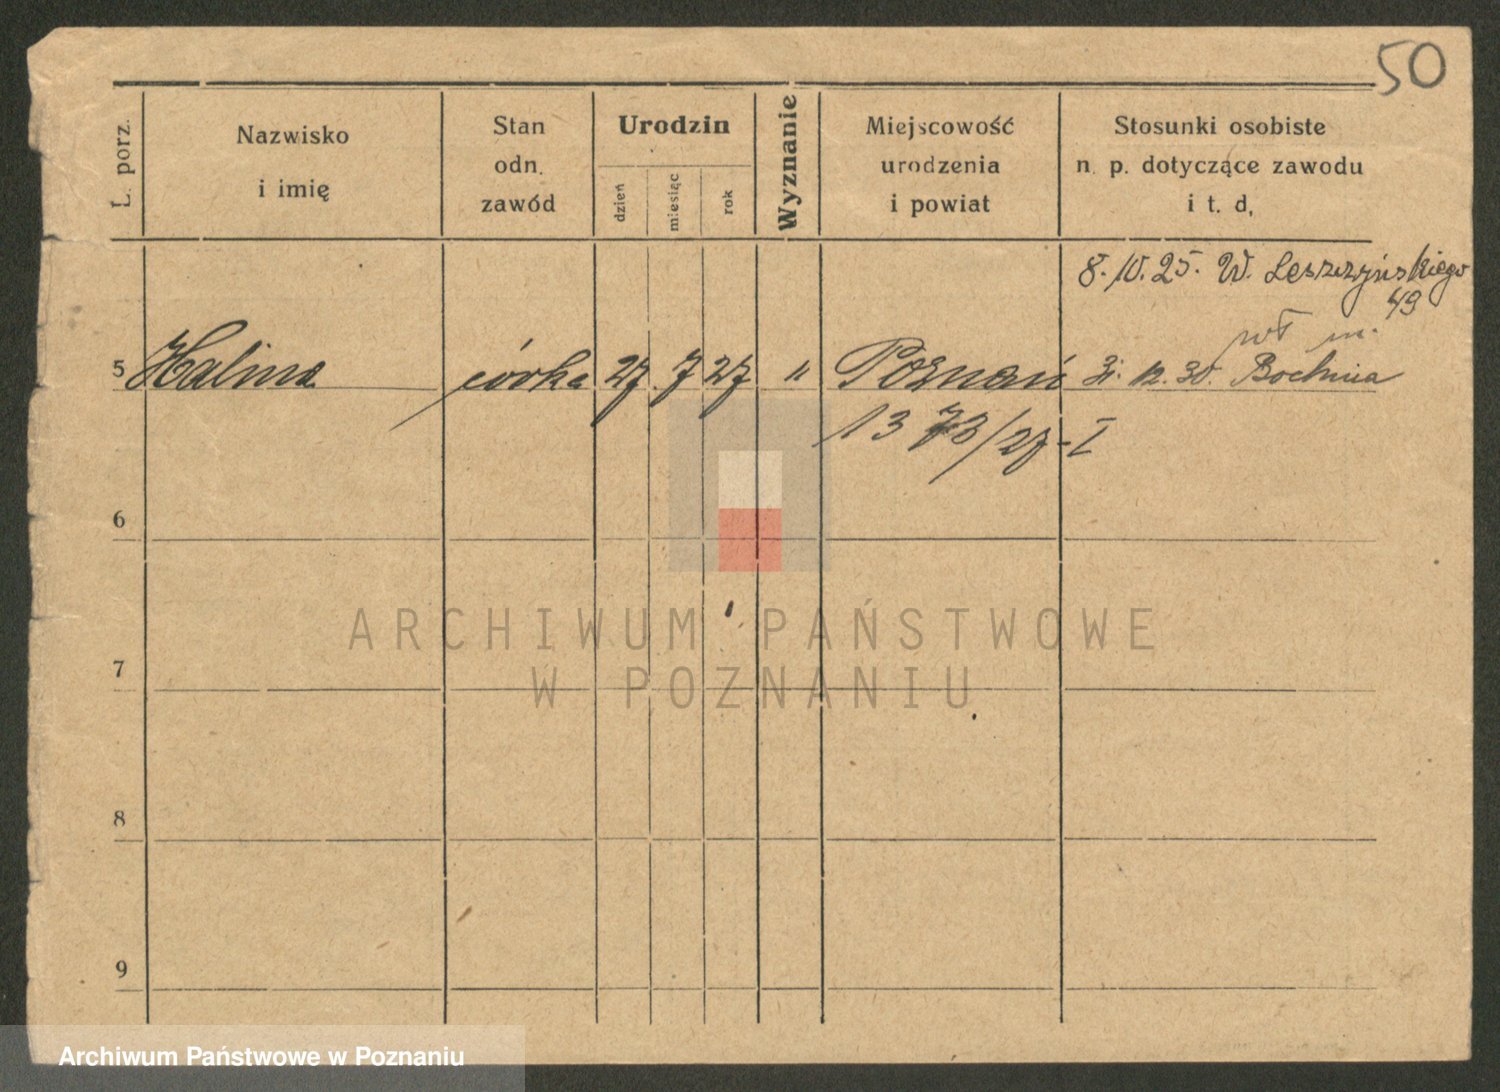 50
L. porz.
Nazwisko
i imię
Stan
odn.
zawód
Urodzin
dzień
miesiąc
rok
Wyznanie
Miejscowość
urodzenia
i powiat
Stosunki osobiste
n. p. dotyczące zawodu
i t. d,
8. 10. 25. W. Leszczyńskiego
49
wł m.
5 Halina córka 27 7 27 " Poznań 31. 12. 30. Bochnia
1373/27-I
6
7
8
9
ARCHIWUM PAŃSTWOWE
W POZNANIU
Archiwum Państwowe w Poznaniu